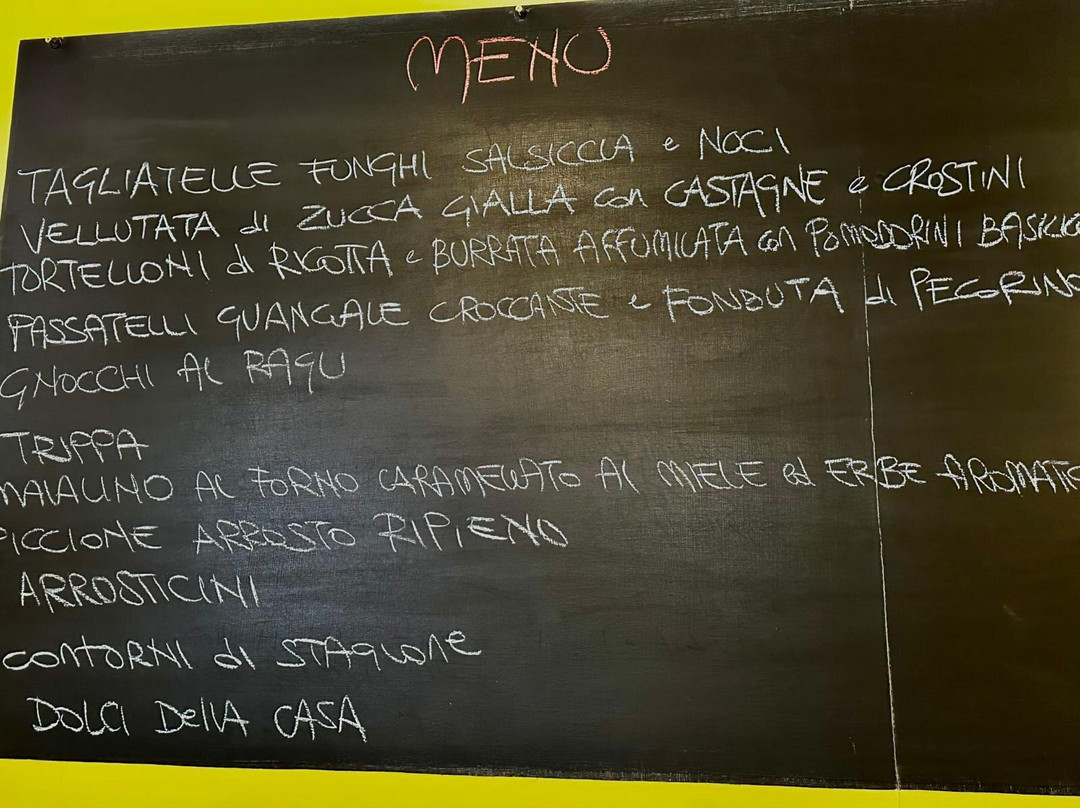 MENU
TAGLIATELLE FUNGHI SALSICCIA e NOCI
VELLUTATA di ZUCCA GIALLA con CASTAGNE e CROSTINI
TORTELLONI di RICOTTA e BURRATA AFFUMICATA con POMODORINI BASILICO
PASSATELLI GUANCIALE CROCCANTE e FONDUTA di PECORINO
GNOCCHI AL RAGU
TRIPPA
MAIALINO AL FORNO CARAMELLATO AL MIELE ed ERBE AROMATIC
PICCIONE ARROSTO RIPIENO
ARROSTICINI
CONTORNI di STAGIONE
DOLCI DellA CASA